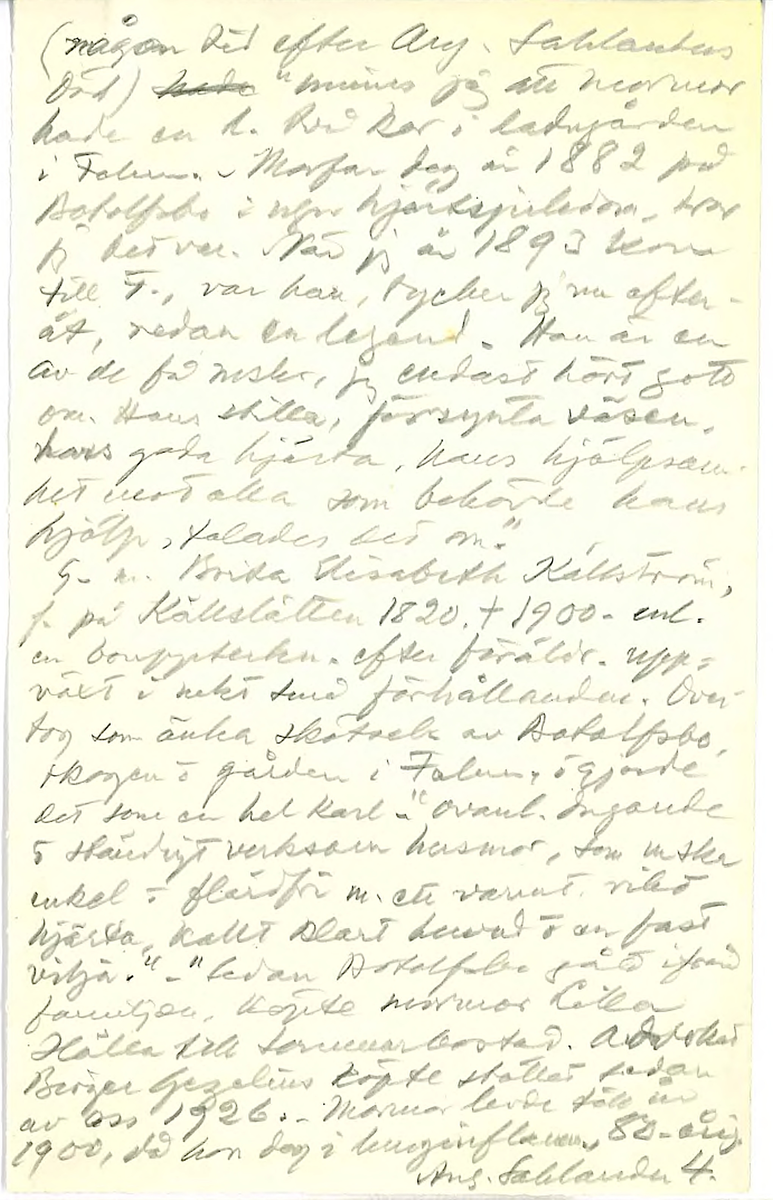 (någon tid efter Aug. Sahlanders
död) hade "minnes jag att mormor
hade en h. kor i ladugården
i Falun. - Morfar dog år 1882 på
Botolfsbo i ngn hjärtsjukdom, tror
jg det var. När jg år 1893 kom
till F., var han, tycker jg nu efter-
åt, redan en legend. Han är en
av de få mskr, jg endast hört gott
om. Hans stilla, försynta väsen,
hans goda hjärta, hans hjälpsam-
het mot alla som behövde hans
hjälp, talades det om."
G. m. Brita Elisabeth Källström,
f. på Källslätten 1820, † 1900 - enl.
en bouppteckn. efter föräldr. upp-
växt i små förhållanden. Över-
tog som änka skötseln av Botolfsbo,
skogen o gården i Falun, o gjorde
det som en hel karl. - "Ovanl.
o ständigt verksam husmor, som mska
enkel o flärdfri m. ett varmt, vekt
hjärta, kallt klart huvud o en fast
vilja." - "Sedan Botolfsbo gått ifrån
familjen, köpte mormor Lilla
Hälla till sommarbostad. Advokat
Birger Gezelius köpte stället sedan
av oss 1926. - Mormor levde till år
1900, då hon dog i lunginflamm., 80-årig.
Aug. Sahlander 4.